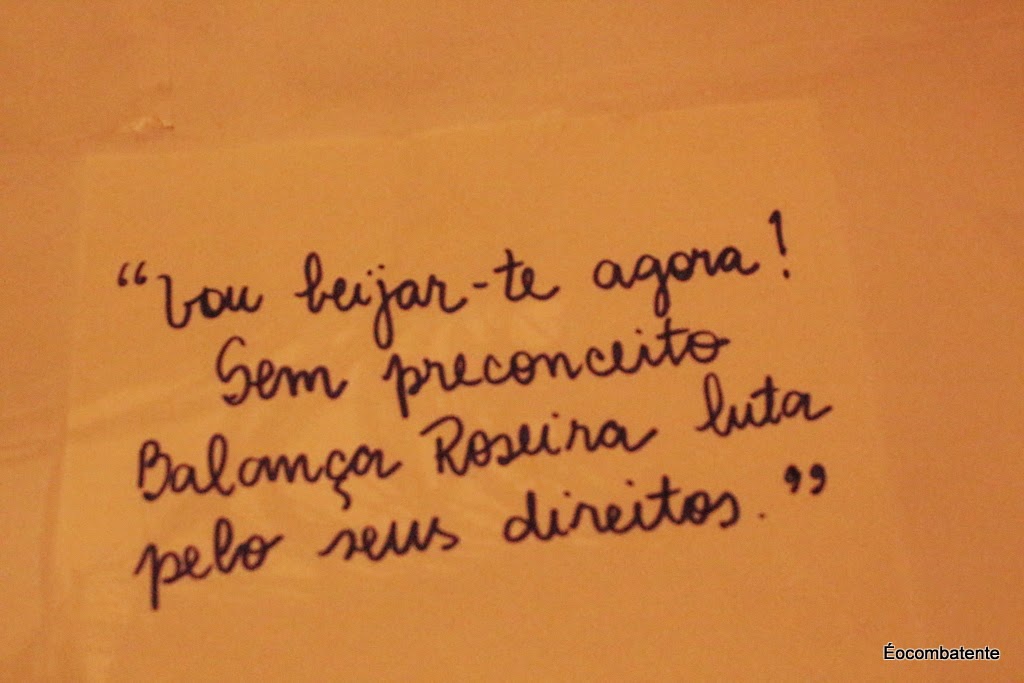 “Vou beijar-te agora!
Sem preconceito
Balança Roseira luta
pelo seus direitos.”
Éocombatente